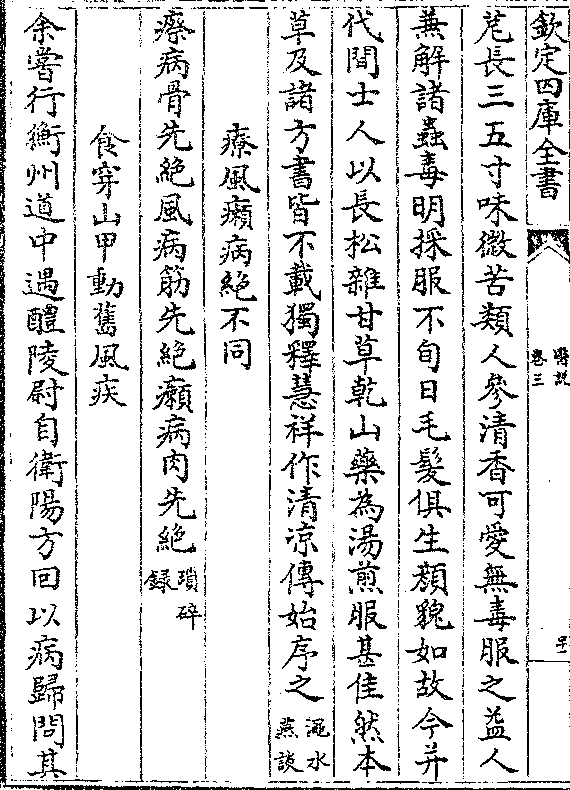 欽定四庫全書
醫説
卷三
芤長三五寸味微苦類人參清香可愛無毒服之益人
兼解諸蟲毒明採服不旬日毛髮俱生顔貌如故今并
代間士人以長松雜甘草乾山藥為湯煎服甚佳然本
草及諸方書皆不載獨釋慧祥作清凉傳始序之澠水燕談
療風癩病絶不同
瘵病骨先絶風病筋先絶癩病肉先絶瑣碎録
食穿山甲動舊風疾
余嘗行衡州道中遇醴陵尉自衛陽方回以病歸問其